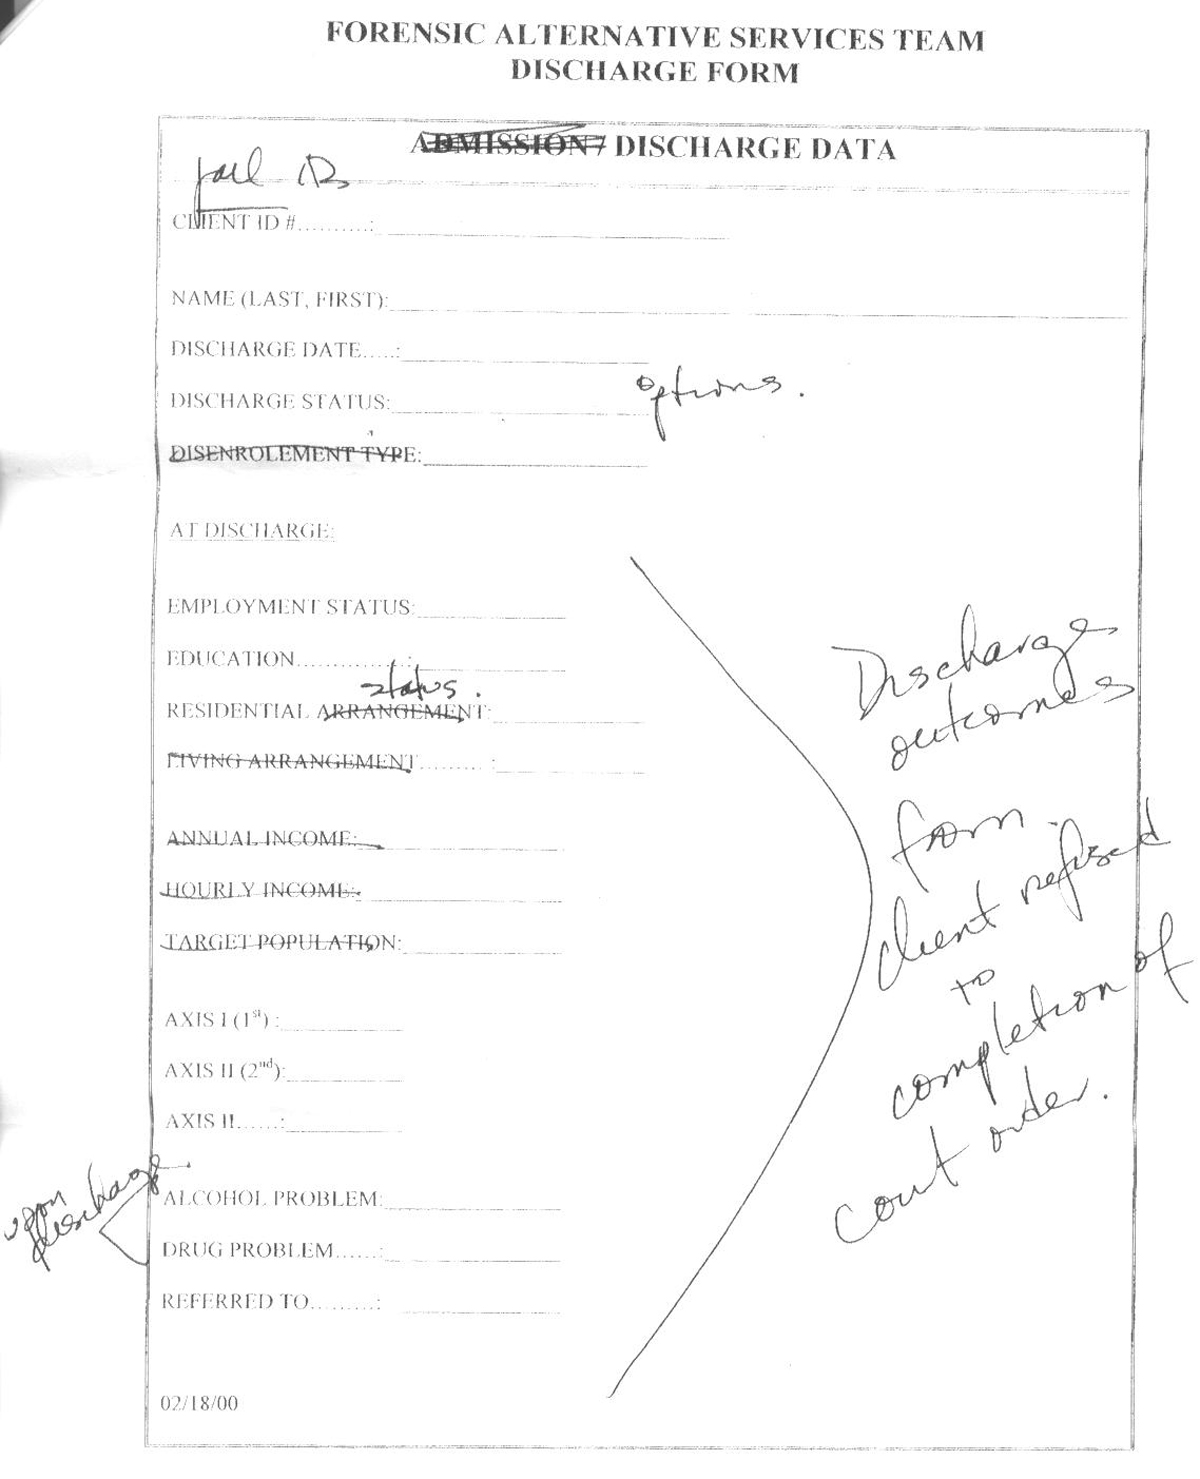 FORENSIC ALTERNATIVE SERVICES TEAM
DISCHARGE FORM
ADMISSION / DISCHARGE DATA
Jail ID
CLIENT ID #..........:
NAME (LAST, FIRST):
DISCHARGE DATE.....:
DISCHARGE STATUS:
options.
DISENROLEMENT TYPE:
AT DISCHARGE:
EMPLOYMENT STATUS:
EDUCATION...............:
status.
RESIDENTIAL ARRANGEMENT:
LIVING ARRANGEMENT......... :
ANNUAL INCOME:
HOURLY INCOME:
TARGET POPULATION:
Discharge
outcomes
from
client refused
to
completion of
court order.
AXIS I (1st) :
AXIS II (2nd):
AXIS II......:
upon
discharge
ALCOHOL PROBLEM:
DRUG PROBLEM......:
REFERRED TO.........:
02/18/00